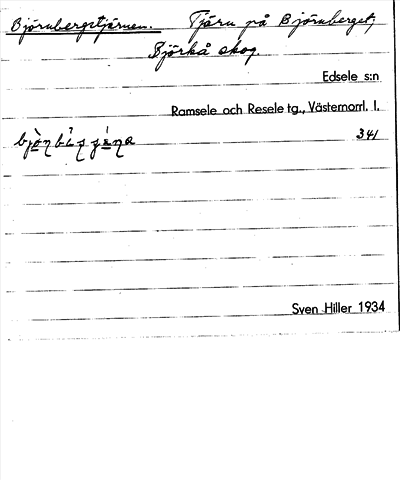 Björnbergstjärnen. Tjärn på Björnberget,
Björkå skog.
Edsele s:n
Ramsele och Resele tg., Västernorrl. l.
341
Sven Hiller 1934